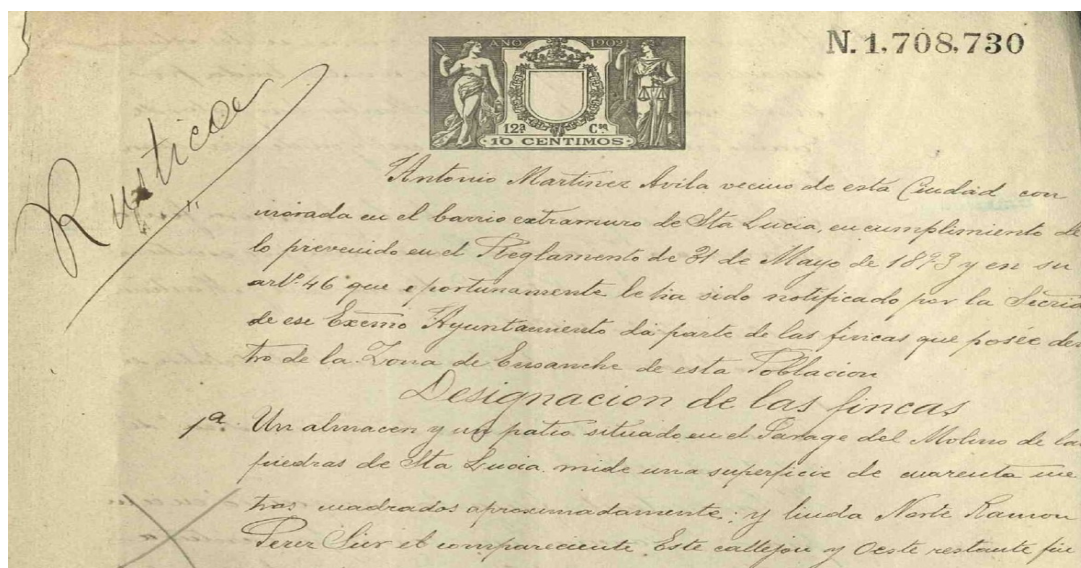 N. 1,708,730
AÑO 1902
12ª Cª
10 CENTIMOS
Rusticas
Antonio Martinez Avila vecino de esta Ciudad con
morada en el barrio extramuro de Sta Lucia, en cumplimiento de
lo prevenido en el Reglamento de 31 de Mayo de 1893 y en su
artº 46 que oportunamente le ha sido notificado por la Secria
de ese Excmo Ayuntamiento dá parte de las fincas que posée den
tro de la Zona de Ensanche de esta Poblacion
Designacion de las fincas
1ª Un almacen y un patio situado en el Parage del Molino de las
piedras de Sta Lucia mide una superficie de cuarenta me
tros cuadrados aproximadamente; y linda Norte Ramon
Perez Sur el compareciente Este callejon y Oeste restante fin